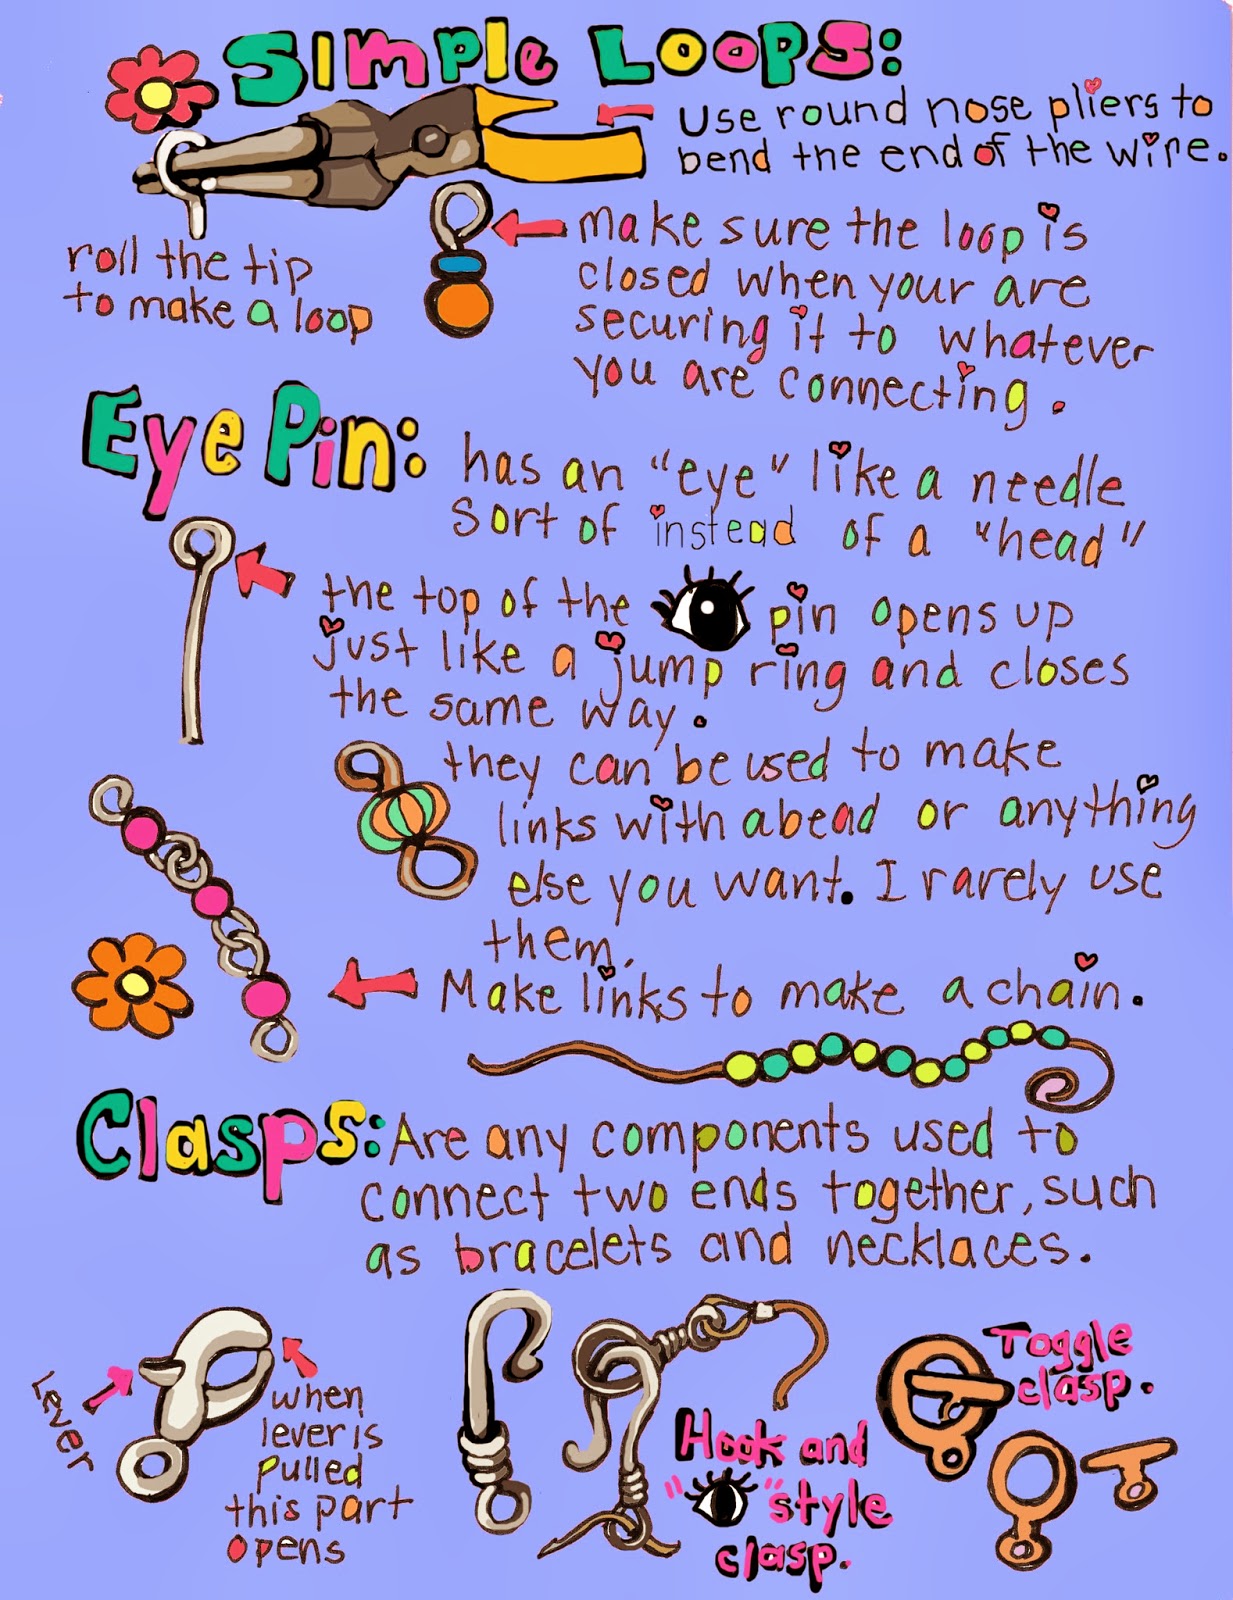 Simple Loops:
use round nose pliers to
bend the end of the wire.
roll the tip
to make a loop
make sure the loop is
closed when your are
securing it to whatever
you are connecting.
Eye Pin:
has an "eye" like a needle
sort of instead of a "head"
the top of the pin opens up
just like a jump ring and closes
the same way.
they can be used to make
links with a bead or anything
else you want. I rarely use
them.
Make links to make a chain.
Clasps:
Are any components used to
connect two ends together, such
as bracelets and necklaces.
Lever
when
lever is
pulled
this part
opens
Hook and
" "style
clasp.
Toggle
clasp.